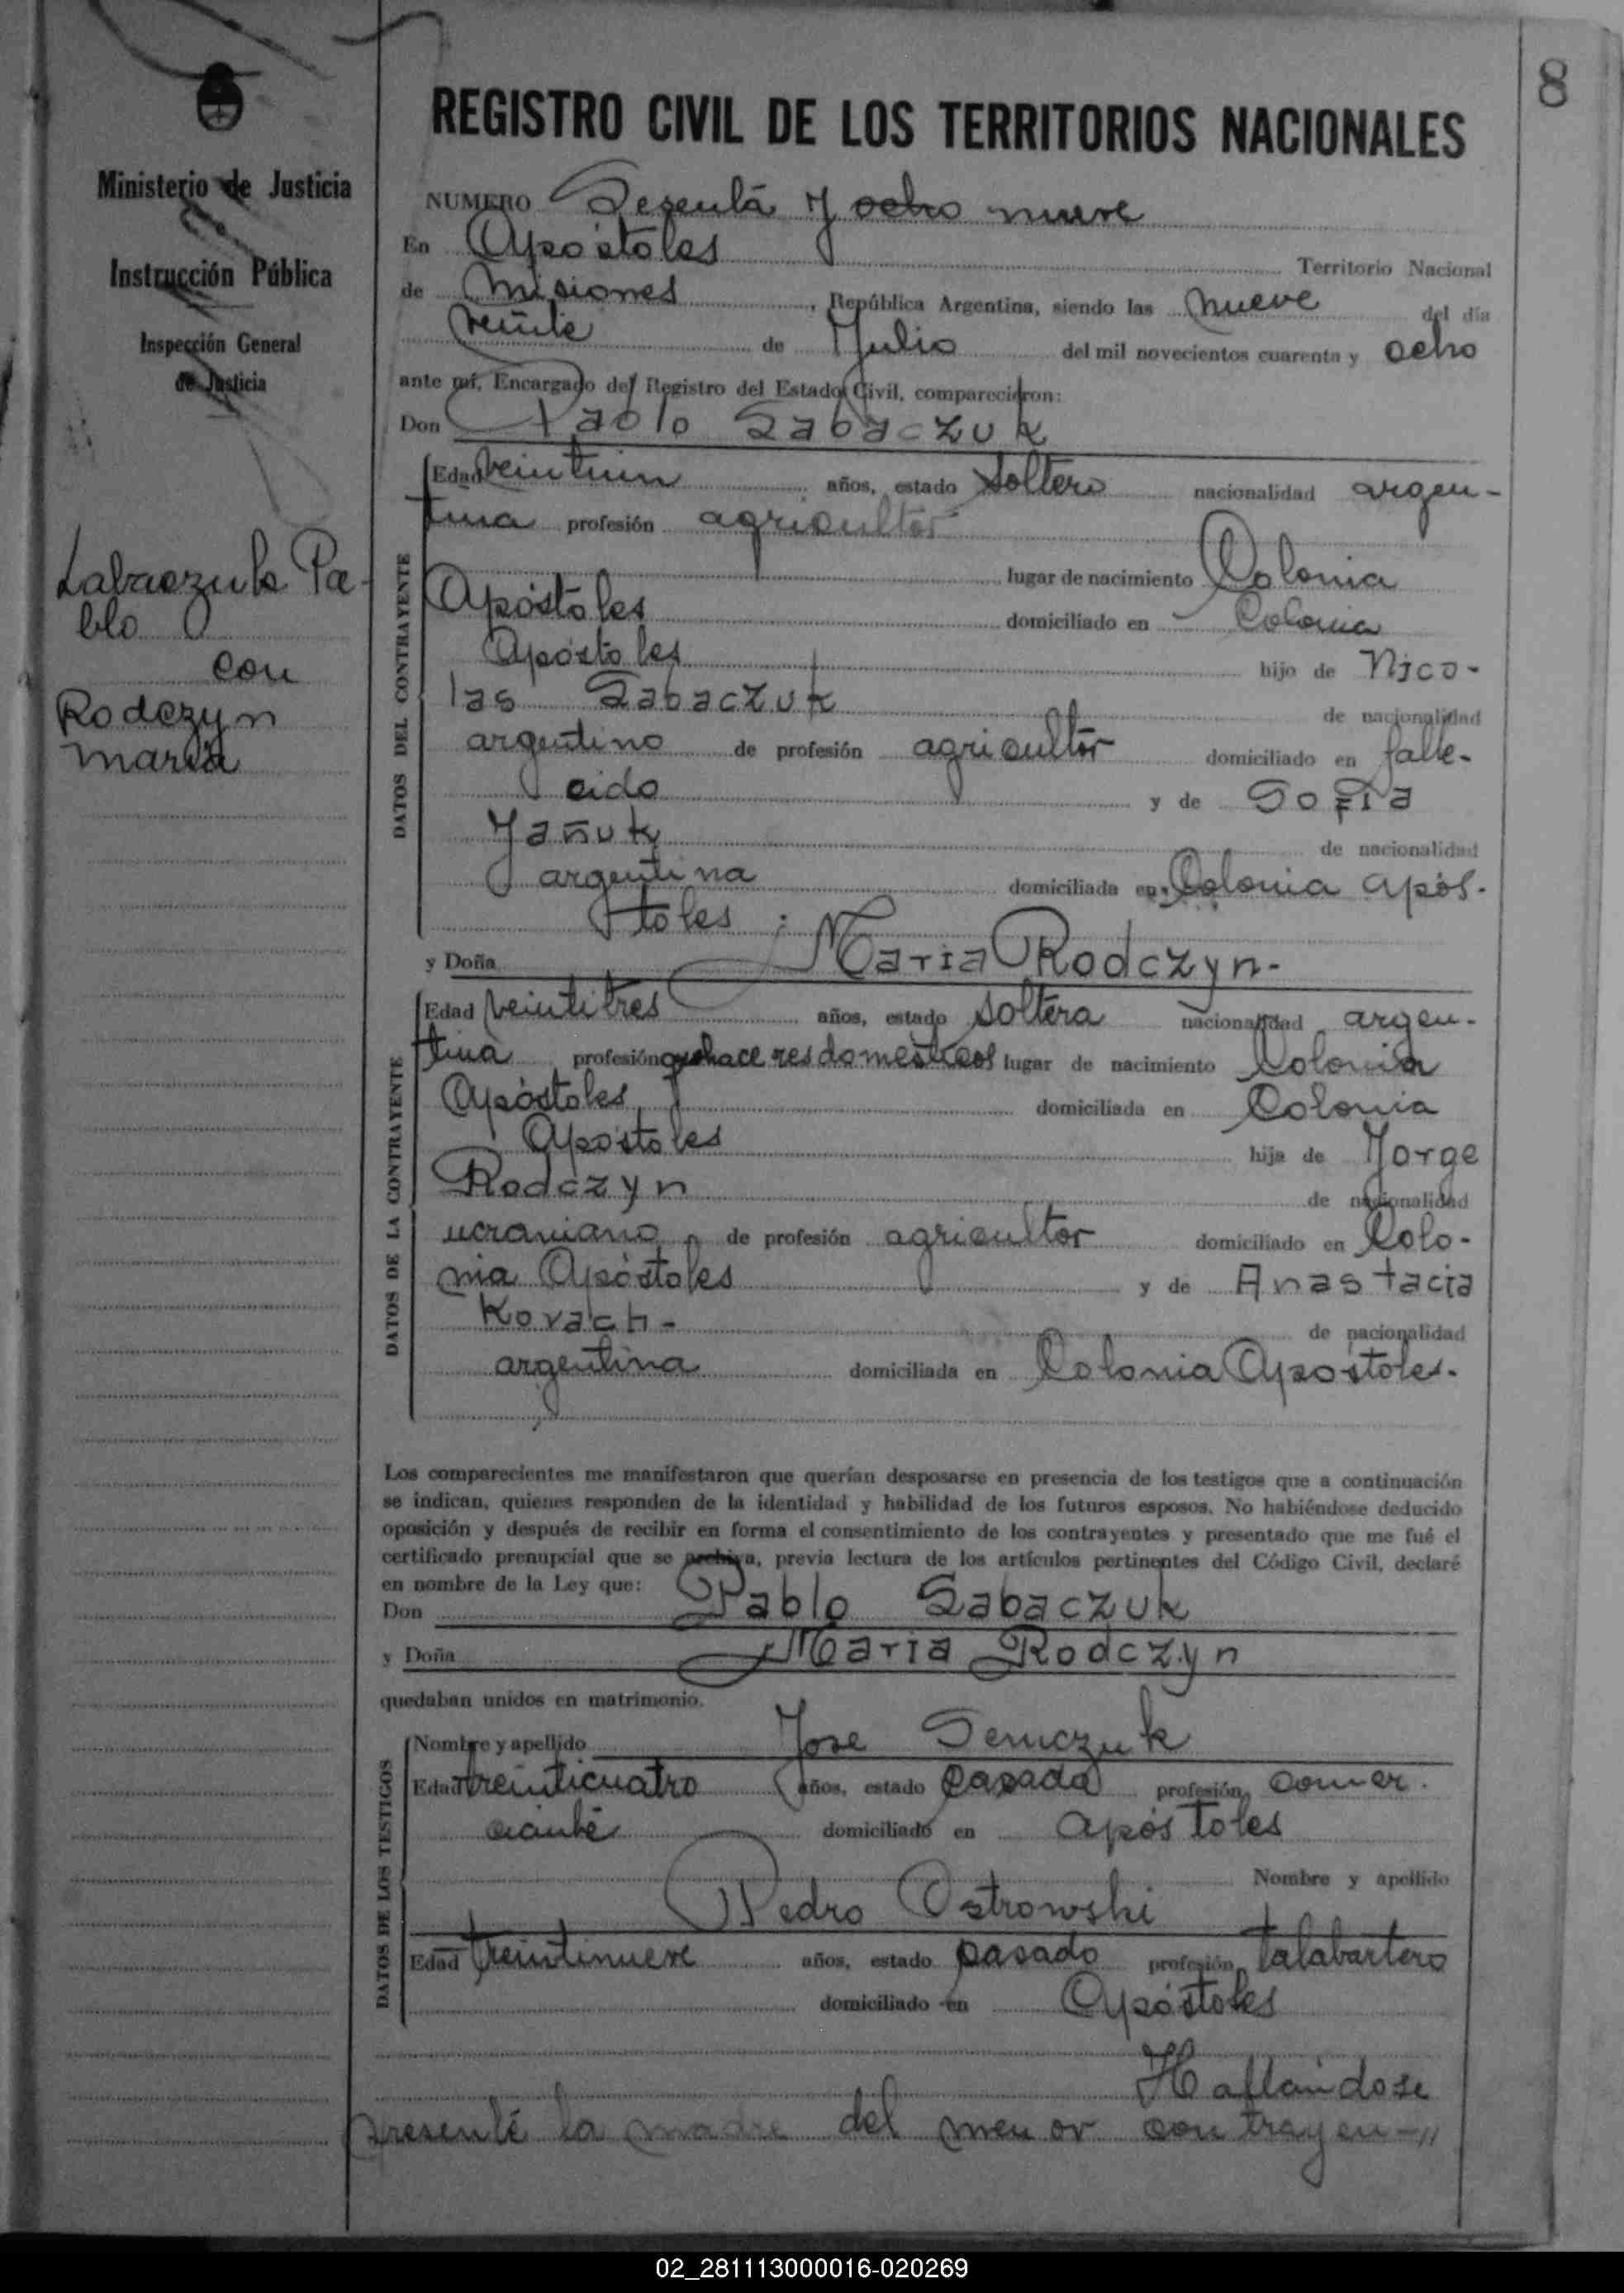 8
REGISTRO CIVIL DE LOS TERRITORIOS NACIONALES
Ministerio de Justicia
Instrucción Pública
Inspección General
de Justicia
NUMERO Sesenta y ocho nueve
En Apóstoles Territorio Nacional
de Misiones, República Argentina, siendo las nueve del día
veinte de Julio del mil novecientos cuarenta y ocho
ante mí, Encargado del Registro del Estado Civil, comparecieron:
Don Pablo Sabaczuk
Edad veintiun años, estado soltero nacionalidad argen-
tina profesión agricultor
lugar de nacimiento Colonia
Apóstoles domiciliado en Colonia
Apóstoles hijo de Nico-
las Sabaczuk de nacionalidad
argentino de profesión agricultor domiciliado en falle-
cido y de Sofia
Yañuk de nacionalidad
argentina domiciliada en Colonia Após-
toles
DATOS DEL CONTRAYENTE
Pa-
blo
con
Rodczyn
Maria
y Doña Maria Rodczyn-
Edad veintitres años, estado soltera nacionalidad argen-
tina profesión quehaceres domesticos lugar de nacimiento Colonia
Apóstoles domiciliada en Colonia
Apóstoles hija de Jorge
Rodczyn de nacionalidad
ucraniano de profesión agricultor domiciliado en Colo-
nia Apóstoles y de Anastacia
Kovach- de nacionalidad
argentina domiciliada en Colonia Apóstoles.
DATOS DE LA CONTRAYENTE
Los comparecientes me manifestaron que querían desposarse en presencia de los testigos que a continuación
se indican, quienes responden de la identidad y habilidad de los futuros esposos. No habiéndose deducido
oposición y después de recibir en forma el consentimiento de los contrayentes y presentado que me fué el
certificado prenupcial que se archiva, previa lectura de los artículos pertinentes del Código Civil, declaré
en nombre de la Ley que:
Don Pablo Sabaczuk
y Doña Maria Rodczyn
quedaban unidos en matrimonio.
Nombre y apellido Jose Semczuk
Edad treinticuatro años, estado casado profesión comer-
ciante domiciliado en Apóstoles
Nombre y apellido
Pedro Ostrowski
Edad treintinueve años, estado casado profesión talabartero
domiciliado en Apóstoles
DATOS DE LOS TESTIGOS
Hallandose
presente la madre del menor contrayen-//
02_281113000016-020269